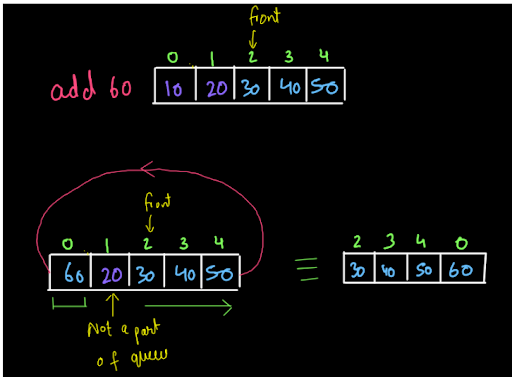 front
0 1 2 3 4
add 60 10 20 30 40 50
front
0 1 2 3 4
60 20 30 40 50
Not a part
of queue
2 3 4 0
30 40 50 60